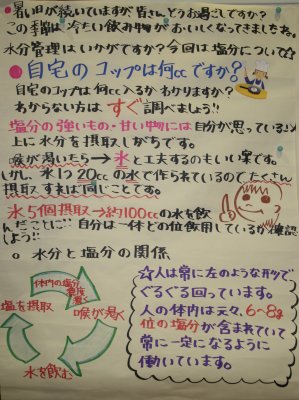 ●暑い日が続いていますが皆さんどうお過ごしですか?
この季節は冷たい飲み物がおいしくなってきましたね。
水分管理はいかがですか?今回は塩分について☆
●自宅のコップは何ccですか?
自宅のコップは何cc入るかわかりますか?
わからない方はすぐ調べましょう!!
塩分の強いもの・甘い物には自分が思っている以
上に水分を摂取しがちです。
喉が渇いたら→氷と工夫するのもいい案です。
しかし氷1つ20ccの水で作られているのでたくさん
摂取すれば同じことです。
氷5個摂取→約100ccの水を飲
んだことに!!自分は一体どの位飲用しているか確認
しよう!!
○水分と塩分の関係
体内の塩分
濃度
濃く
塩を摂取
喉が渇く
水を飲む
☆人は常に左のような形で
ぐるぐる回っています。
人の体内は元々、6~8g
位の塩分が含まれていて
常に一定になるように
働いています。